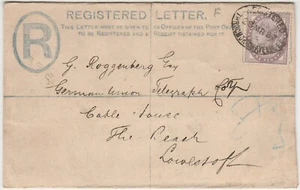 REGISTERED LETTER.
THIS LETTER MUST BE GIVEN TO AN OFFICER OF THE POST OFFICE
TO BE REGISTERED AND A RECEIPT OBTAINED FOR IT.
R
F
G. Roggenberg Esq
German Union Telegraph Coy
Cable House
The Beach
Lowestoft